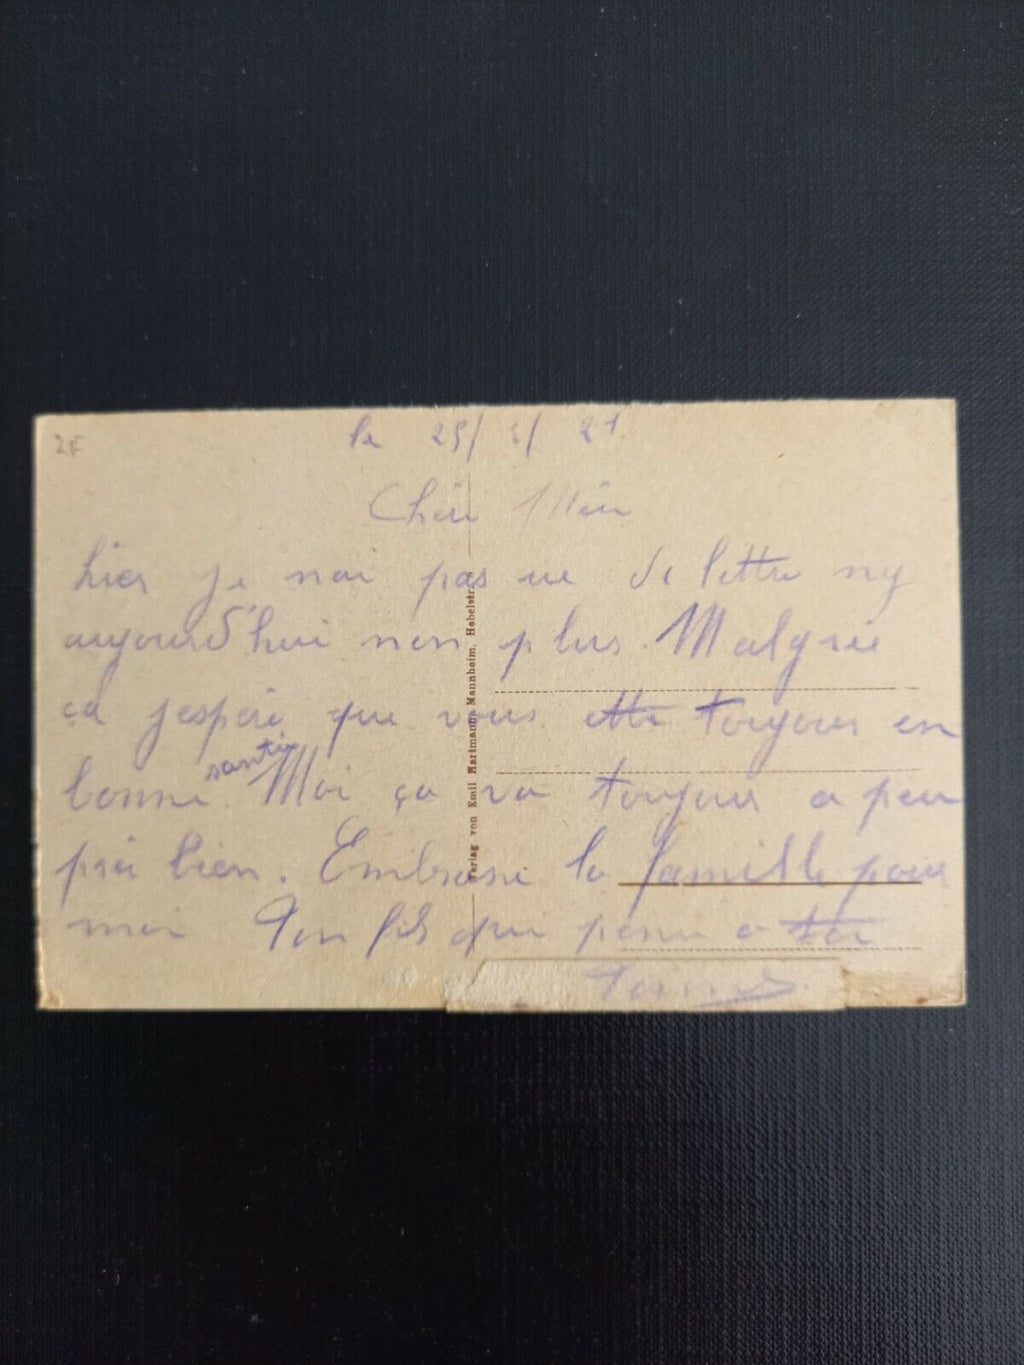 2F
le 25/ 5/ 21.
Chère Mère
hier je nai pas ue de lettre ny
aujourd'hui non plus. Malgrée
ça j'espère que vous ette toujours en
bonne santée Moi ça va toujours a peu
près bien. Embrasse la famille pour
moi Ton fils qui pense a toi
Verlag von Emil Hartmann, Mannheim, Hebelstr.